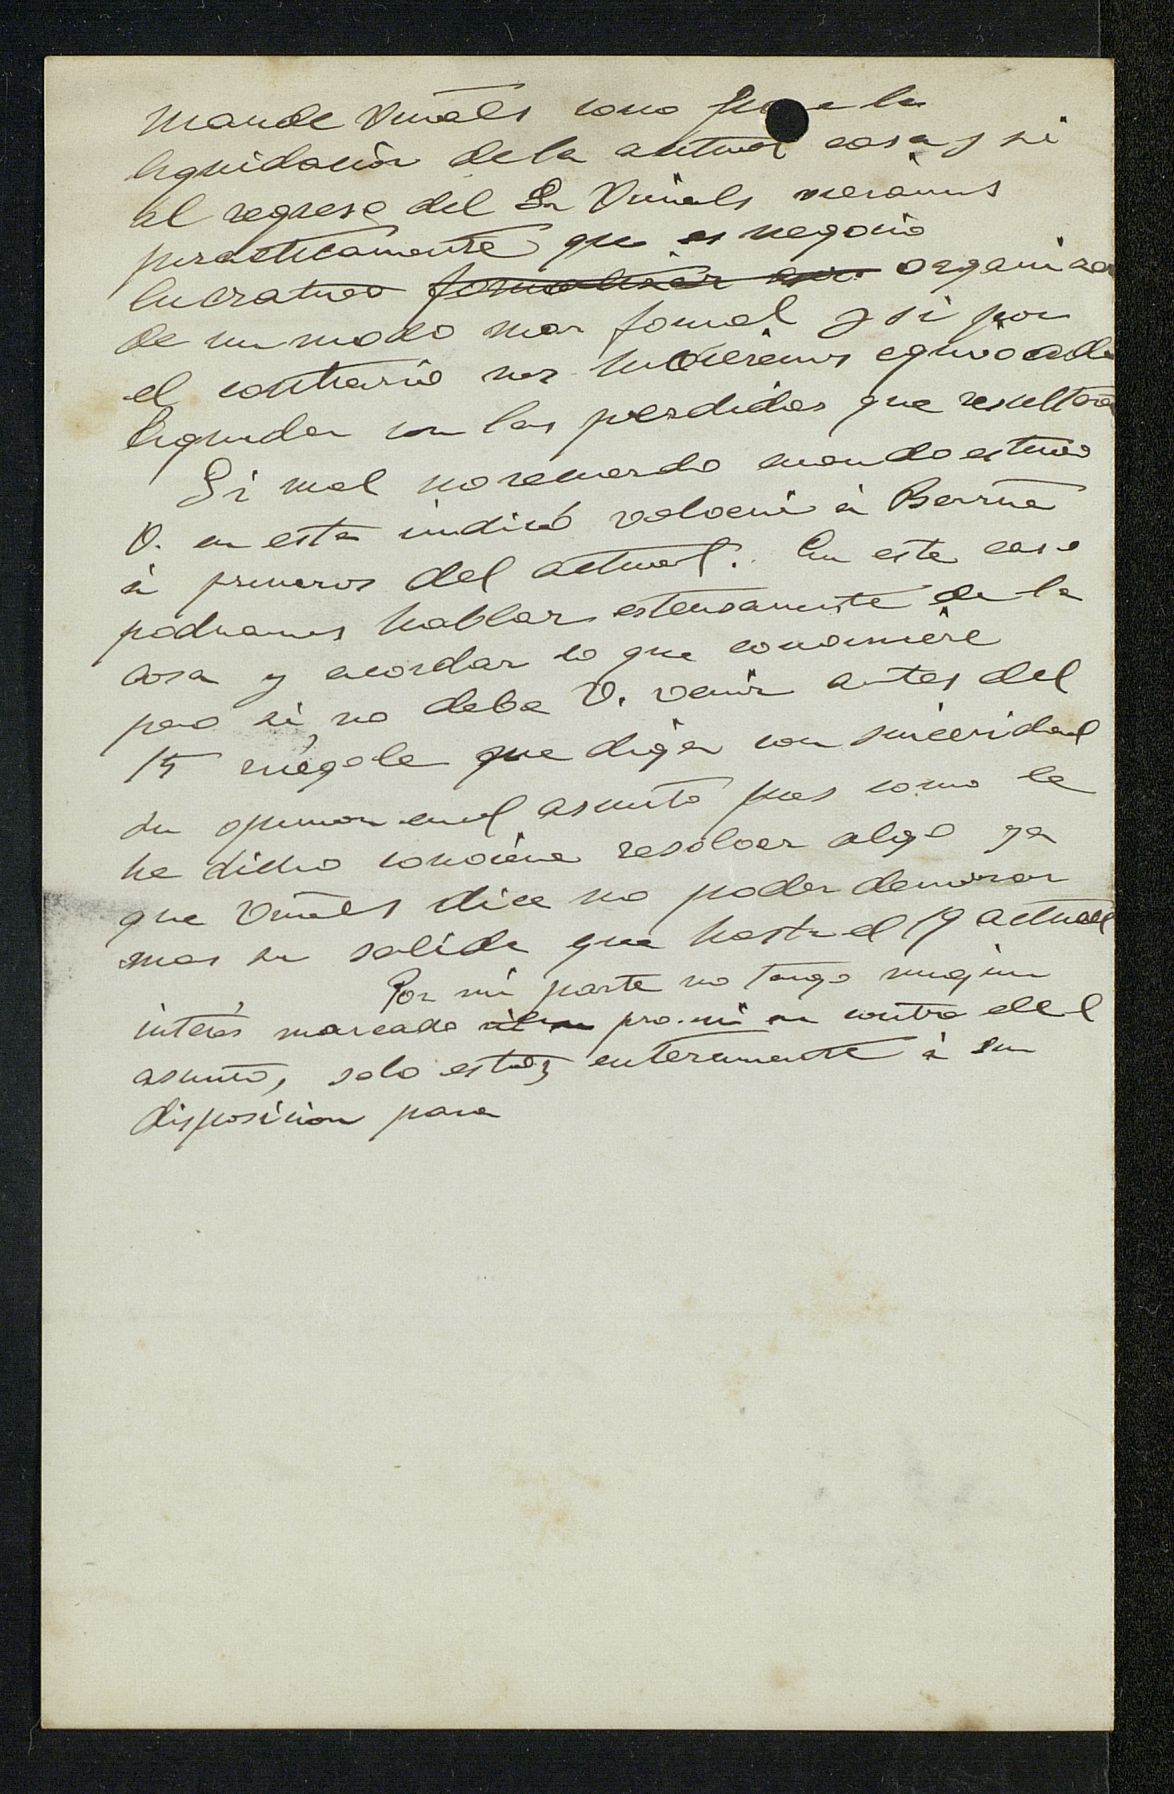 mande Vinals como fu e la
liquidación de la actual casa y si
al regreso del Sr Vinals vieramos
practicamente que es negocio
lucrativo formalizar organizar
de un modo mas formal y si por
el contrario nos hubieramos equivocado
liquidar con las perdidas que resultara
Si mal no recuerdo cuando estuvo
V. en esta indicó volveria á Barna
á primeros del actual. En este caso
podriamos hablar estensamente de la
cosa y acordar lo que conviniere
pero si, no debe V. venir antes del
15 ruegole que diga con sinceridad
su opinion en el asunto pues como le
he dicho conviene resolver algo ya
que Vinals dice no poder demorar
mas su salida que hasta el 19 actual
Por mi parte no tengo ningun
interés marcado pro ni en contra del
asunto, solo estoy enteramente á su
disposicion para